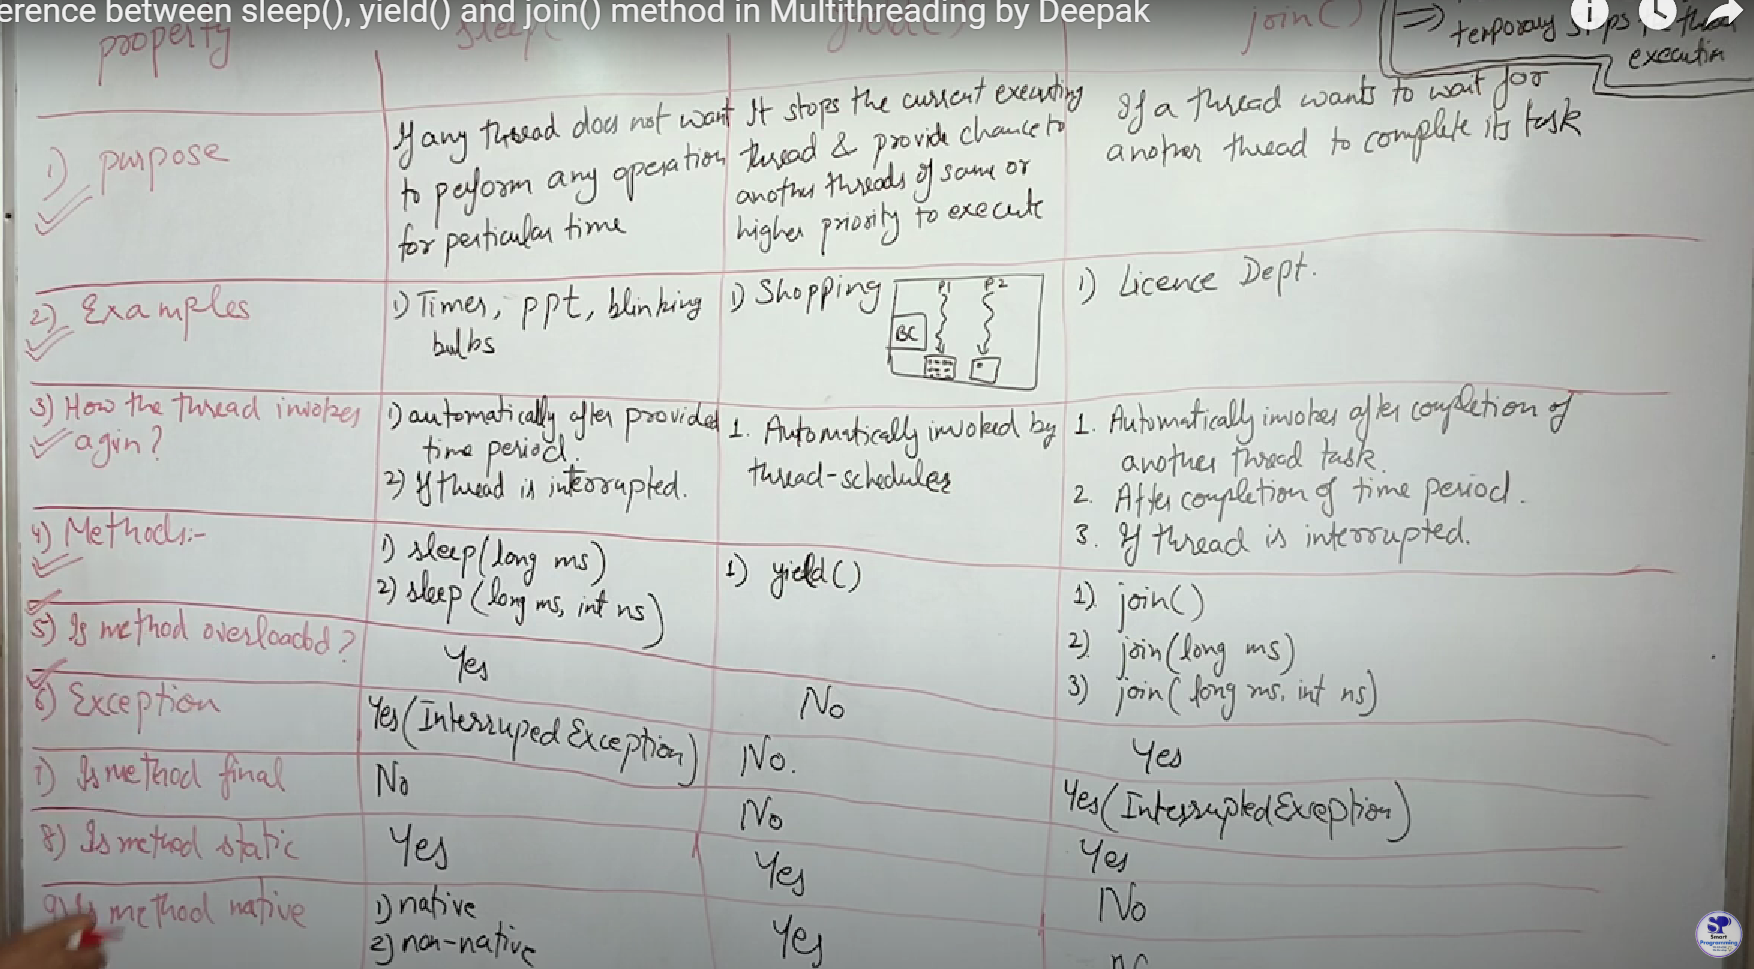 erence between sleep(), yield() and join() method in Multithreading by Deepak
property
sleep(
yield()
join()
⇒ temporary stops
execution
1) purpose
If any thread does not want
to perform any operation
for perticular time
It stops the current executing
thread & provide chance to
another threads of same or
higher priority to execute
If a thread wants to wait for
another thread to complete its task
2) Examples
1) Timer, ppt, blinking
bulbs
1) Shopping
P1 P2
BC
1) Licence Dept.
3) How the thread invokes
agin?
1) automatically after provided
time period.
2) If thread is interrupted.
1. Automatically invoked by
thread-scheduler
1. Automatically invokes after completion of
another thread task.
2. After completion of time period.
3. If thread is interrupted.
4) Methods:-
1) sleep(long ms)
2) sleep (long ms, int ns)
1) yield()
1) join()
2) join(long ms)
3) join( long ms, int ns)
5) Is method overloadod?
Yes
No
Yes
6) Exception
Yes(InterrupedException)
No.
Yes(InterruptedException)
7) Is method final
No
No
Yes
8) Is method static
Yes
Yes
No
9) Is method native
1) native
2) non-native
Yes
SP
Smart
Programming